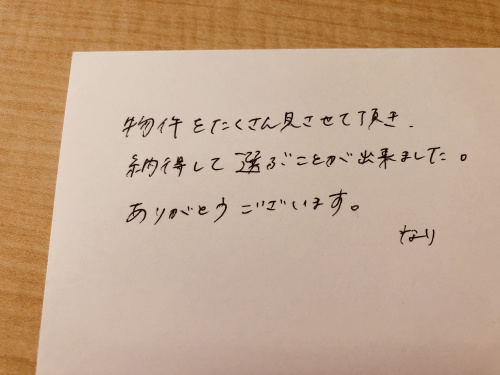 物件をたくさん見させて頂き、
納得して選ぶことが出来ました。
ありがとうございます。
なり